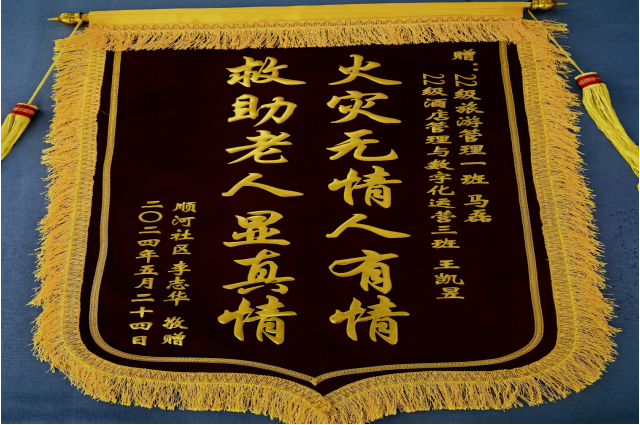 赠：22级旅游管理一班 马磊
22级酒店管理与数字化运营三班 王凯昱
火灾无情人有情
救助老人显真情
顺河社区 李志华 敬赠
二〇二四年五月二十四日